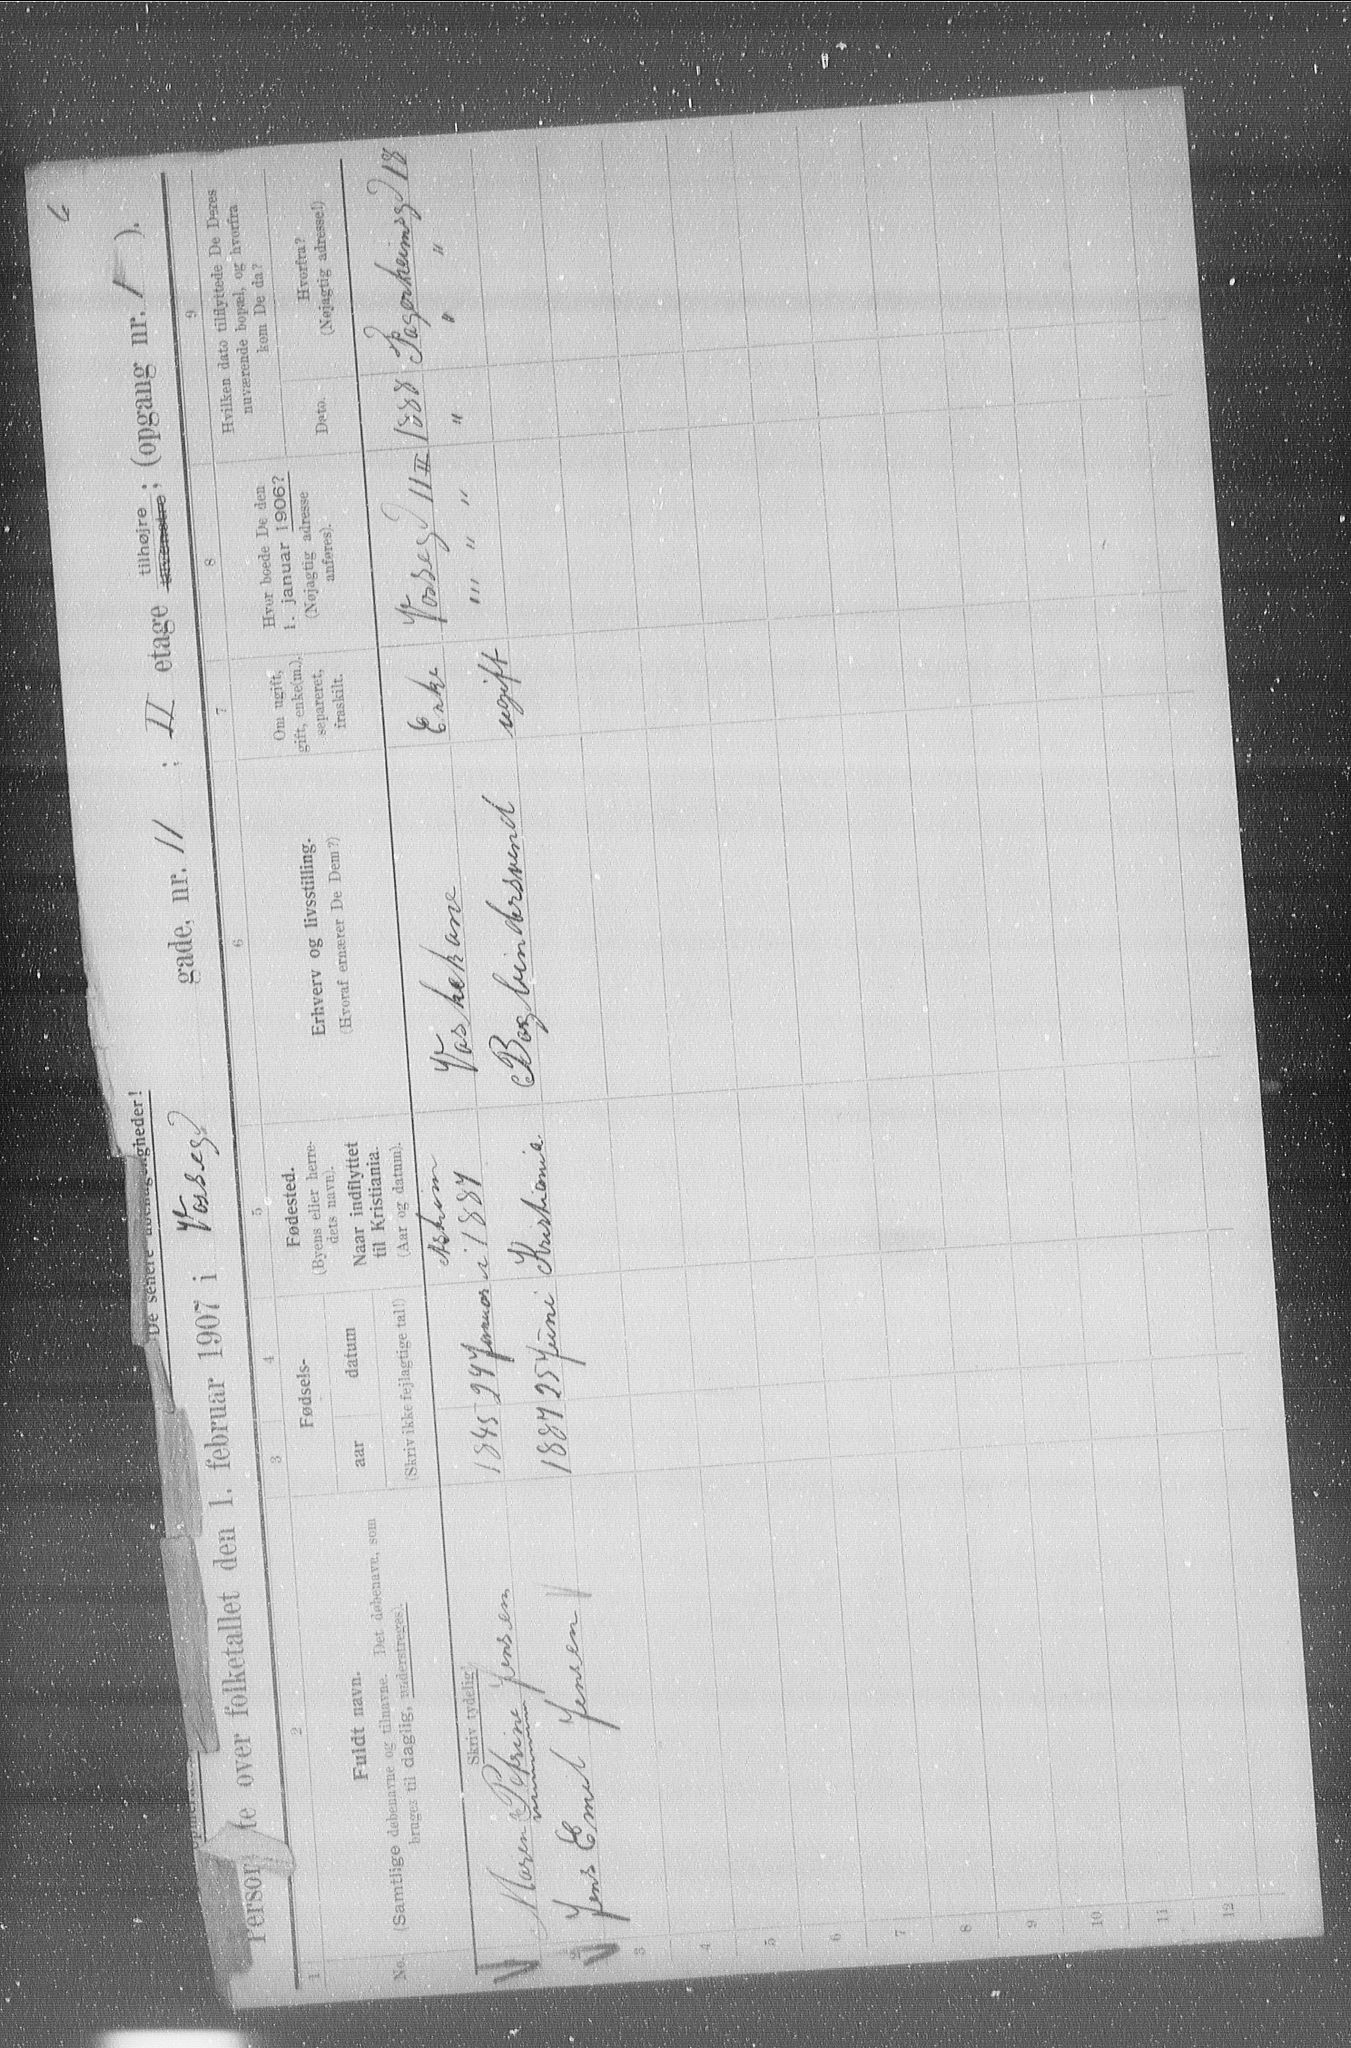 6
De senere
Person te over folketallet den 1. februar 1907 i Vosseg gade, nr. 11 ; II etage tilhøjre tilvenstre ; (opgang nr. 1 ).
1 2 3 4 5 6 7 8 9
No.
Fuldt navn.
(Samtlige døbenavne og tilnavne. Det døbenavn, som
bruges til daglig, understreges).
Skriv tydelig!
Fødsels-
aar datum
(Skriv ikke fejlagtige tal!)
Fødested.
(Byens eller herre-
dets navn).
Naar indflyttet
til Kristiania.
(Aar og datum).
Erhverv og livsstilling.
(Hvoraf ernærer De Dem?)
Om ugift,
gift, enke(m.),
separeret,
fraskilt.
Hvor boede De den
1. januar 1906?
(Nøjagtig adresse
anføres).
Hvilken dato tilflyttede De Deres
nuværende bopæl, og hvorfra
kom De da?
Dato.
Hvorfra?
(Nøjagtig adresse!)
Askim
Maren Petrine Jensen 1845 24 Januar i 1887 Vaskekone Enke Vosseg 11 II 1888 Fagerheimsg 18
2 Jens Emil Jensen 1887 25 Juni Kristiania. Bogbindersvend ugift " " " " " " "
3
4
5
6
7
8
9
10
11
12